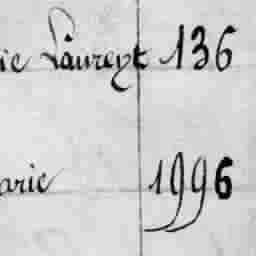 ie Laureyt 136
arie 1996